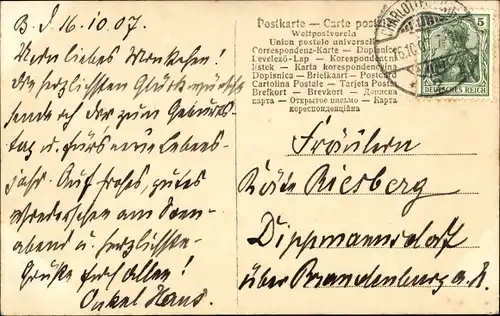 B. d. 16.10.07.
Mein liebes Menkehen!
Die herzlichsten Glückwünsche
sende ich Dir zum Geburts-
tag u. für's neue Lebens-
jahr. Auf frohes, gutes
Wiedersehen am Sonn-
abend u. herzlichste
Grüße Euch Allen!
Onkel Hans.
Postkarte — Carte postale
Weltpostverein
Union postale universelle
Correspondenz-Karte — Dopisnice
Levelező-Lap — Korespondent
listek — Karta korespondencyjna
Dopisnica — Briefkaart — Postcard
Cartolina Postale — Tarjeta Postal
Brefkort — Brevkort — Дописна
карта — Открытое письмо — Карта
кореспонденційна
CHARLOTTENBURG
15.10.07
5
DEUTSCHES REICH
Fräulein
Käte Riesberg
Dippmannsdorf
über Brandenburg a. H.